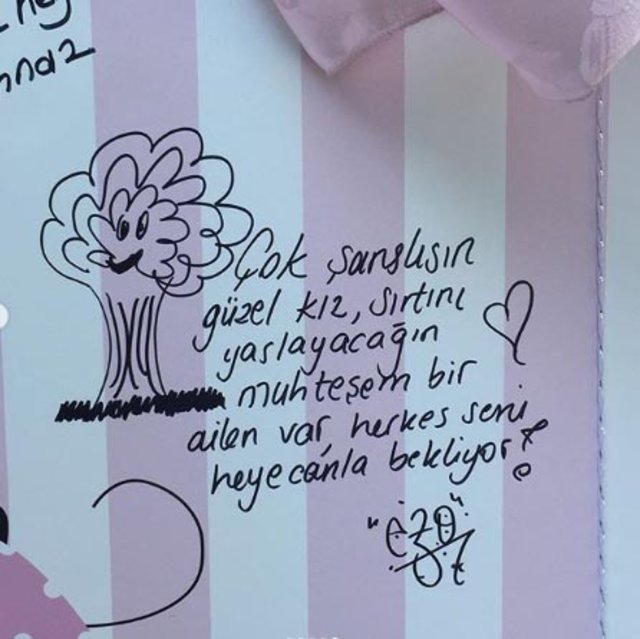 Çok şanslısın
güzel kız, sırtını
yaslayacağın
muhteşem bir
ailen var, herkes seni
heyecanla bekliyor!